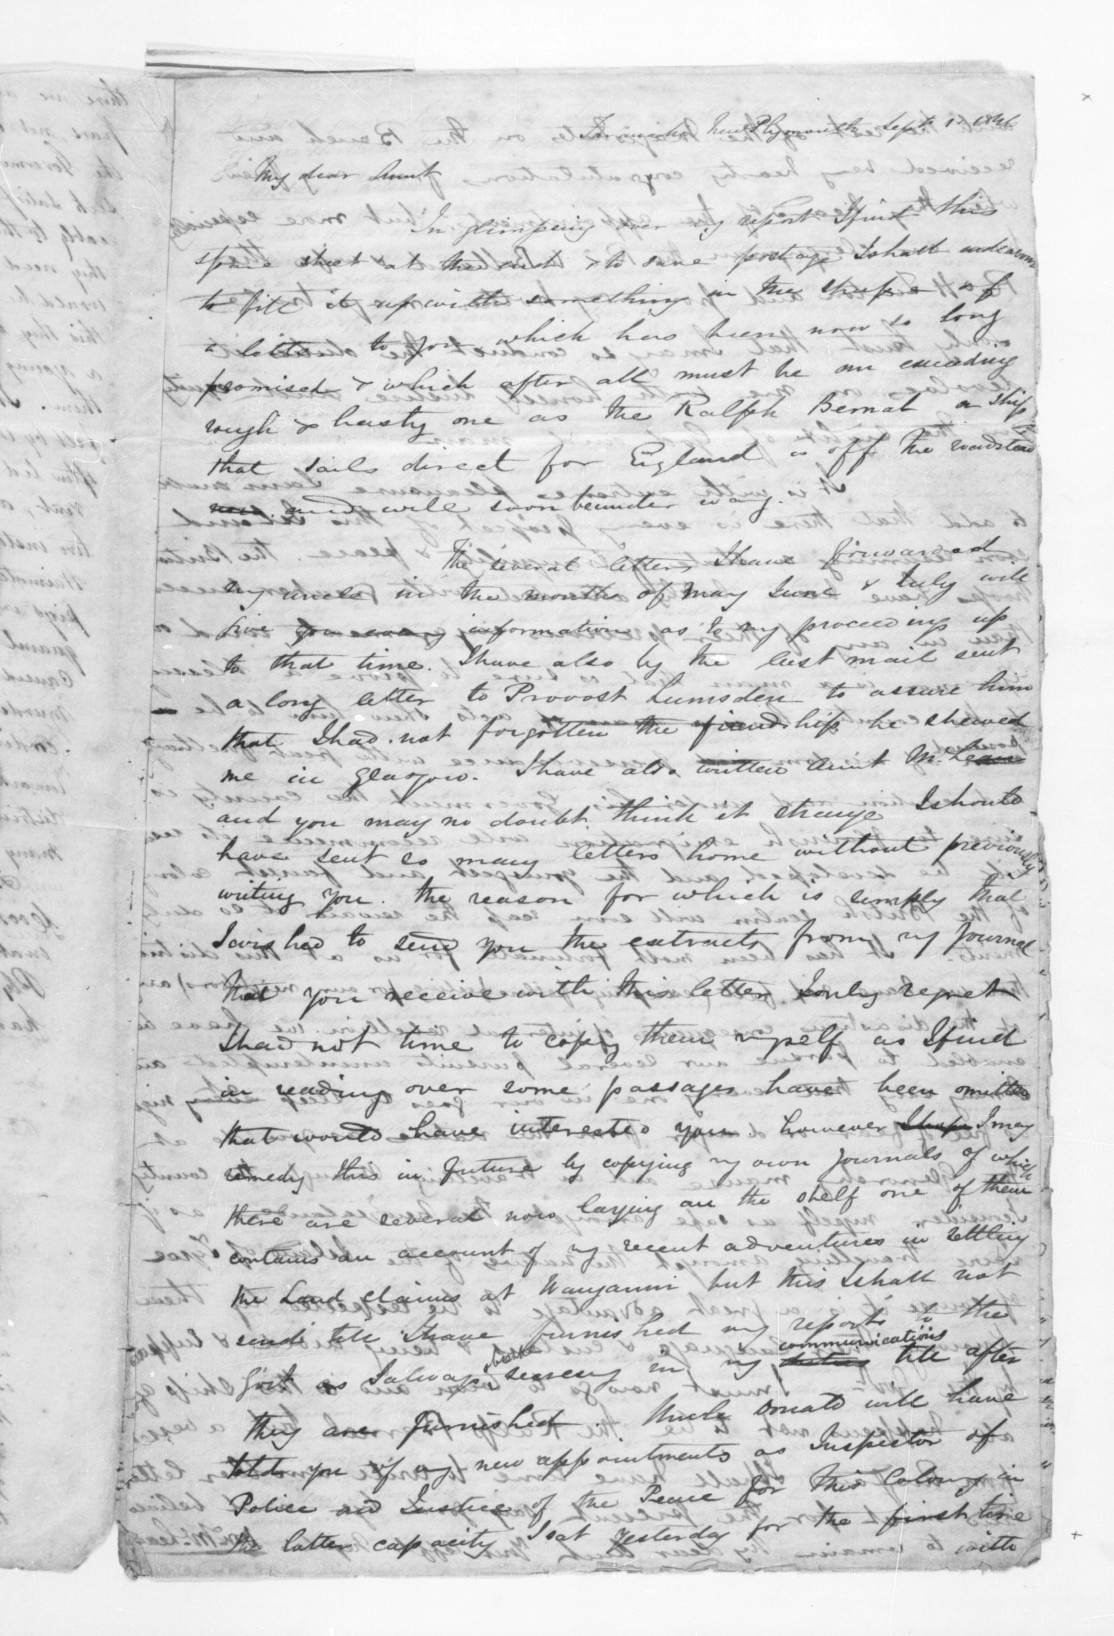 Taranaki New Plymouth Sept. 1846
My dear Aunt
In glimpsing over my report I find this
spare sheet at the end & to save postage I shall endeavour
to fill it up with something in the shape of
a letter to you which has been now so long
promised & which after all must be an exceeding
rough & hasty one as the Ralph Bernal a Ship
that sails direct for England is off the roadstead
and will soon be under way.
The several letters I have forwarded
my uncle in the months of May June & July will
give you every information as to my proceedings up
to that time. I have also by the last mail sent
a long letter to Provost Lumsden to assure him
that I had not forgotten the friendship he shewed
me in Glasgow. I have also written Aunt McLean
and you may no doubt think it strange I should
have sent so many letters home without previously
writing you. the reason for which is simply that
I wished to send you the extracts from my Journal
that you receive with this letter I only regret
I had not time to copy them myself as I find
in reading over some passages have been omitted
that would have interested you however I may
remedy this in future by copying my own Journals of which
there are several now laying on the shelf one of them
contains an account of my recent adventures in settling
the Land claims at Wanganui but this I shall not
send till I have furnished my reports to the
Govt as I always observe secrecy in my communications till after
they are furnished. Uncle Donald will have
told you of my new appointments as Inspector of
Police and Justice of the Peace for this Colony in
the latter capacity I sat yesterday for the first time
with